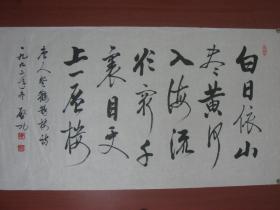 白日依山
尽黄河
入海流
欲穷千
里目更
上一层楼
唐人登鹳雀楼诗
一九八二年 启功